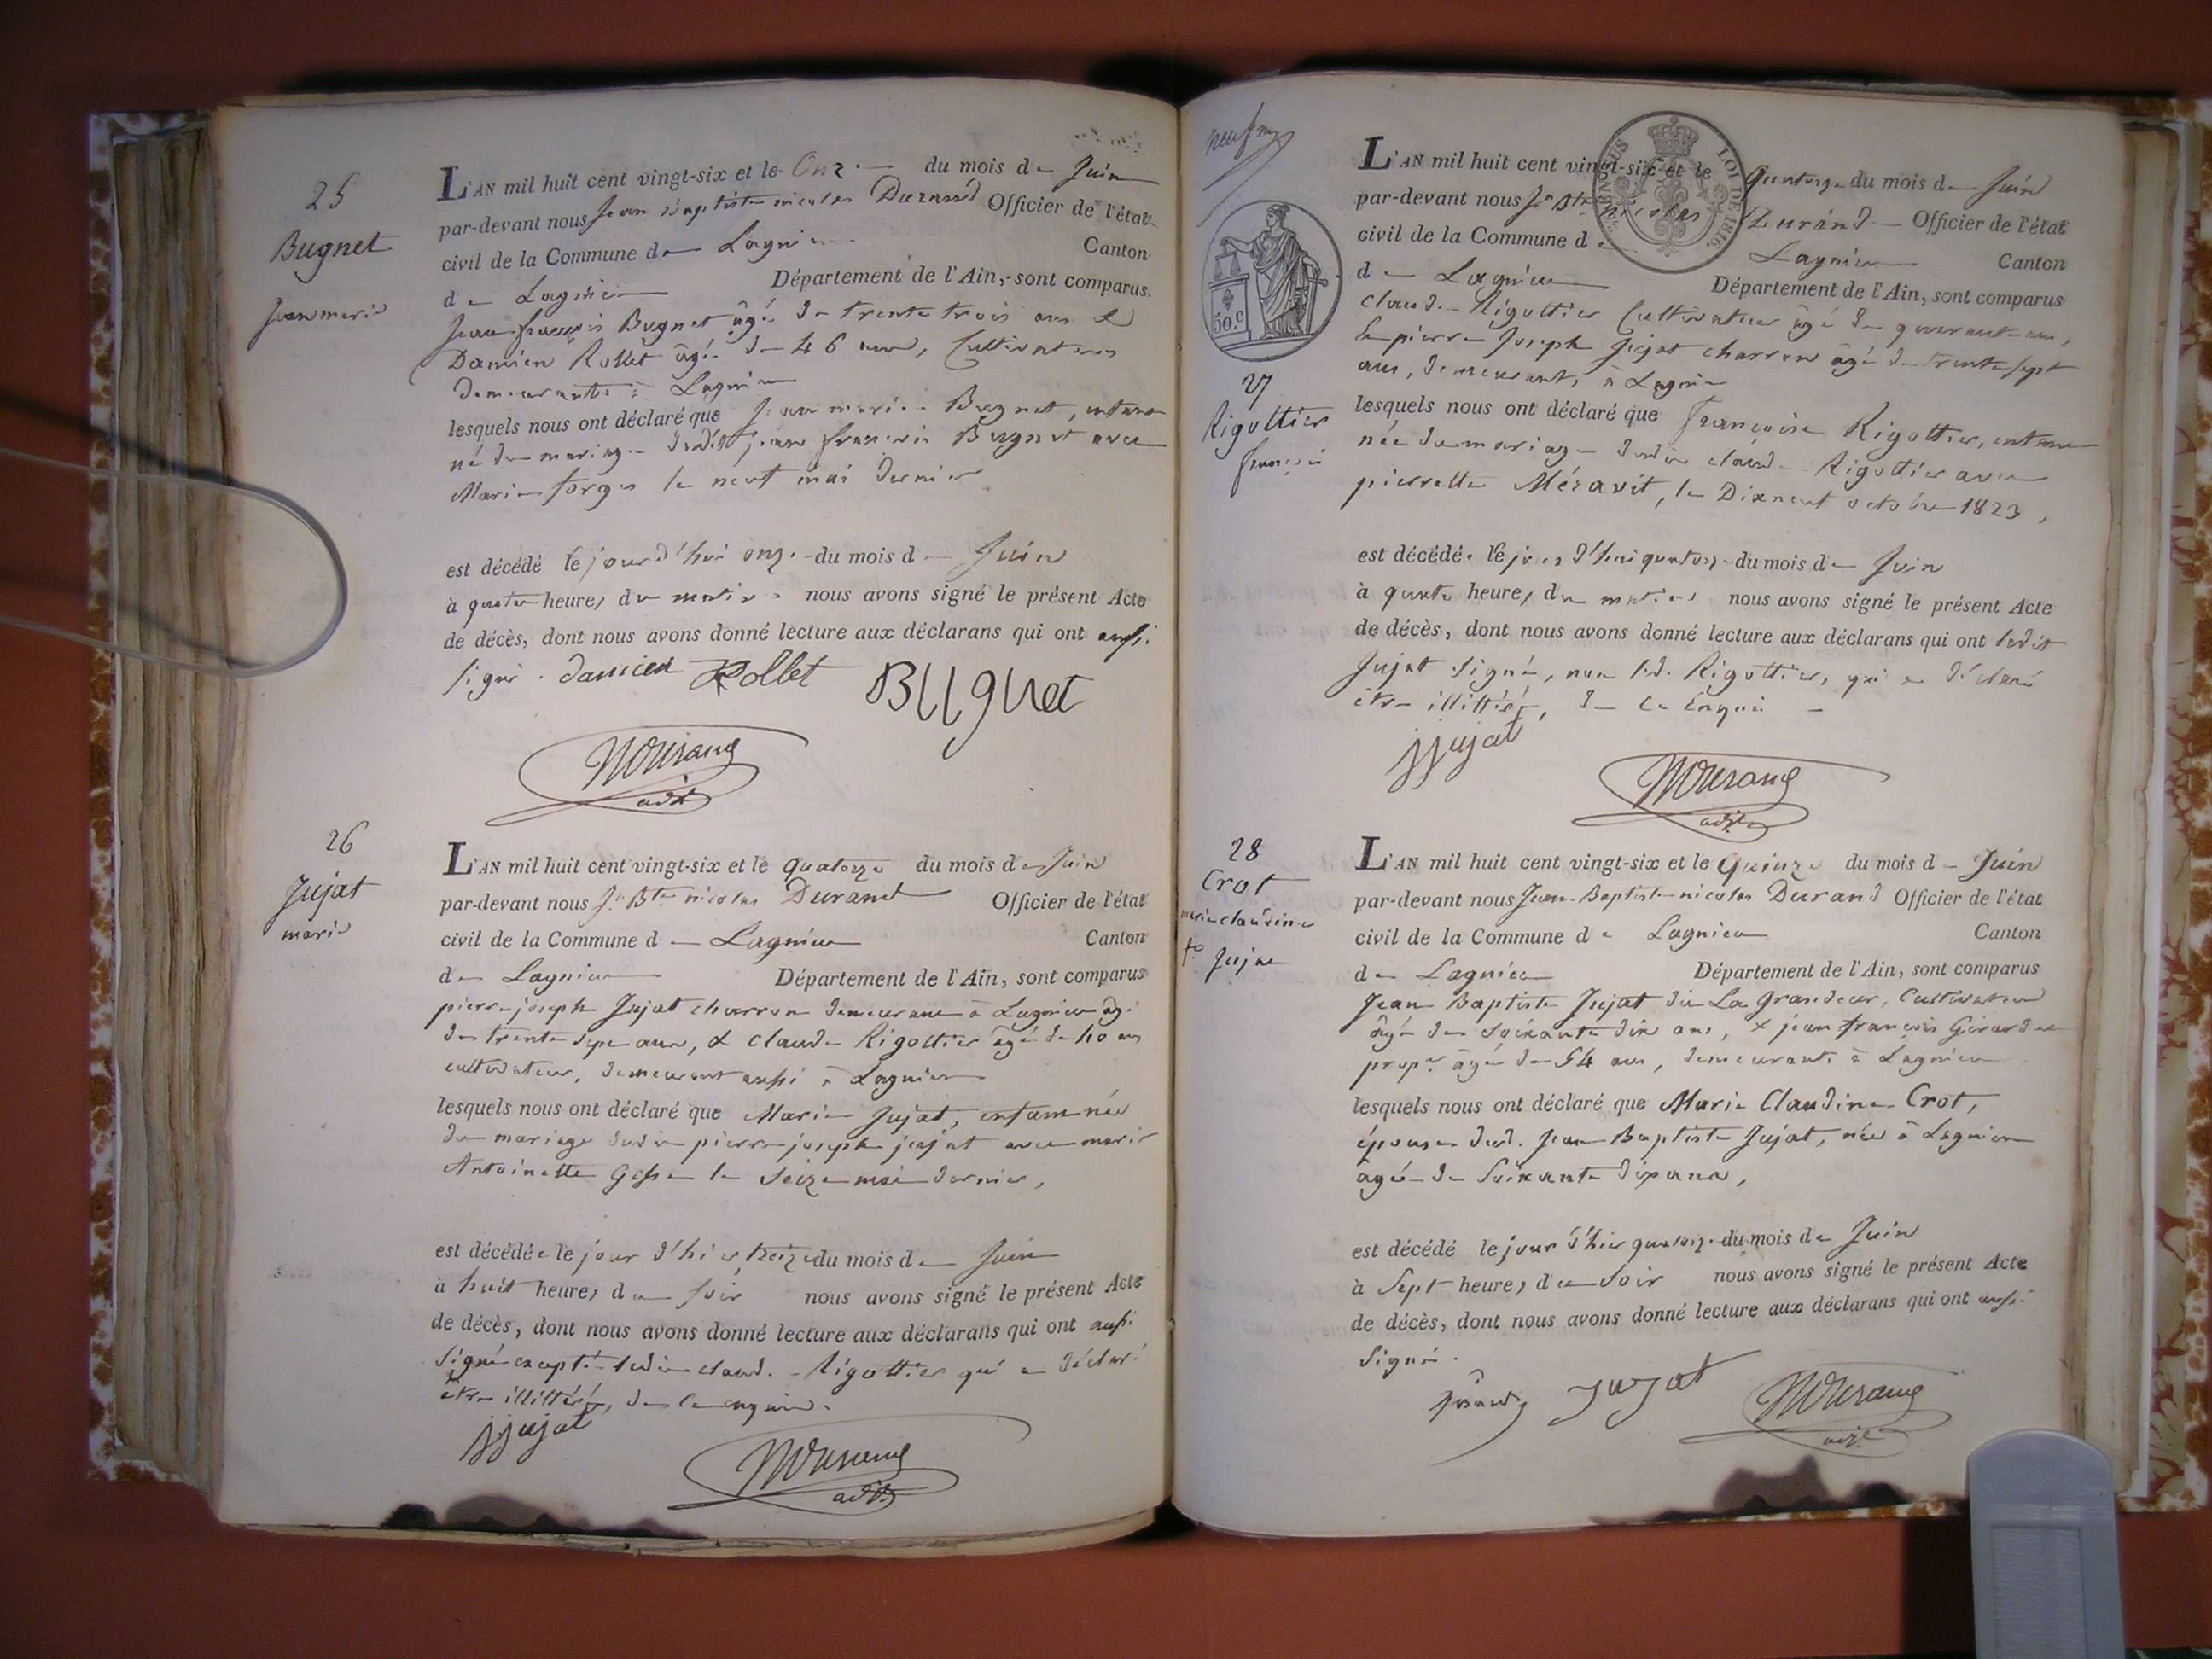 25
Bugnet
Jean marie
L'AN mil huit cent vingt-six et le Onze du mois de Juin
par-devant nous Jean Baptiste nicolas Durand Officier de l'état
civil de la Commune de Lagnieu Canton
de Lagnieu Département de l'Ain, sont comparus
Jean françois Bugnet âgé de trente trois ans &
Damien Rollet âgé de 46 ans, Cultivateurs
demeurants à Lagnieu
lesquels nous ont déclaré que Jean marie Bugnet, enfant
né du mariage dudit jean françois Bugnet avec
Marie forges le neuf mai dernier
est décédé le jourd'hui onze du mois de Juin
à quatre heures du matin nous avons signé le présent Acte
de décès, dont nous avons donné lecture aux déclarans qui ont aussi
signé. damien Rollet Bugnet
NDurand
adjt
26
Jujat
marie
L'AN mil huit cent vingt-six et le quatorze du mois de Juin
par-devant nous Jn Bte nicolas Durand Officier de l'état
civil de la Commune de Lagnieu Canton
de Lagnieu Département de l'Ain, sont comparus
pierre joseph Jujat charron demeurant à Lagnieu âgé
de trente sept ans, & claude Rigottier âgé de 40 ans
cultivateur, demeurant aussi à Lagnieu
lesquels nous ont déclaré que Marie Jujat, enfant née
du mariage dudit pierre joseph jujat avec marie
Antoinette le Seize mai dernier,
est décédée le jour d'hier treize du mois de Juin
à huit heures du soir nous avons signé le présent Acte
de décès, dont nous avons donné lecture aux déclarans qui ont aussi
Signé excepté ledit claude Rigottier qui a déclaré
être illittéré, de ce enquis.
jjujat
NDurand
adjt
neuf
TIMBRE LOI DE 1816.
50.C
27
Rigottier
françoise
L'AN mil huit cent vingt-six et le quatorze du mois de Juin
par-devant nous Jn Bte nicolas Durand Officier de l'état
civil de la Commune de Lagnieu Canton
de Lagnieu Département de l'Ain, sont comparus
claude Rigottier Cultivateur âgé de quarante ans,
& pierre Joseph Jujat charron âgé de trente sept
ans, demeurants à Lagnieu
lesquels nous ont déclaré que françoise Rigottier, enfant
née du mariage dudit claude Rigottier avec
pierrette Méravit, le Dixneuf octobre 1823,
est décédée le jour d'hui quatorze du mois de Juin
à quatre heures du matin nous avons signé le présent Acte
de décès, dont nous avons donné lecture aux déclarans qui ont ledit
Jujat signé, non led. Rigottier, qui a déclaré
être illittéré, de ce Enquis
jjujat
NDurand
adjt
28
Crot
marie claudine
fe Jujat
L'AN mil huit cent vingt-six et le Quinze du mois de Juin
par-devant nous Jean-Baptiste nicolas Durand Officier de l'état
civil de la Commune de Lagnieu Canton
de Lagnieu Département de l'Ain, sont comparus
Jean Baptiste Jujat dit La Grandeur, Cultivateur
âgé de soixante dix ans, & jean françois
propre âgé de 54 ans, demeurants à Lagnieu
lesquels nous ont déclaré que Marie Claudine Crot,
épouse dud. Jean Baptiste Jujat, née à Lagnieu
âgée de Soixante dix ans,
est décédé le jour d'hier quatorze du mois de Juin
à Sept heures du Soir nous avons signé le présent Acte
de décès, dont nous avons donné lecture aux déclarans qui ont aussi
Signé.
jujat NDurand
adjt